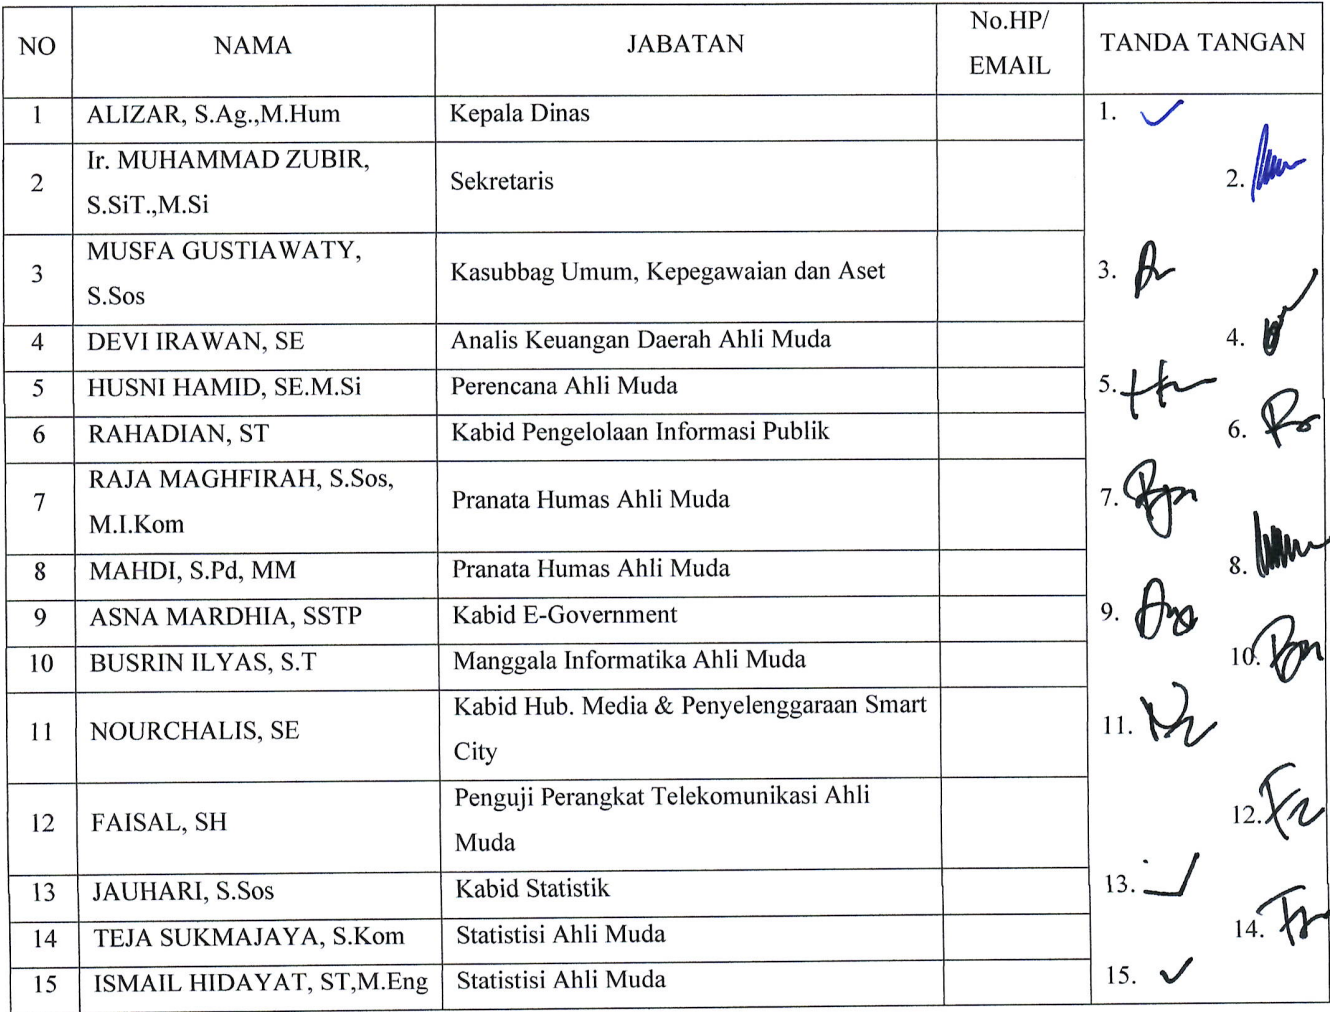 NO NAMA JABATAN No.HP/ TANDA TANGAN
EMAIL
1 ALIZAR, S.Ag.,M.Hum Kepala Dinas 1.
Ir. MUHAMMAD ZUBIR,
2 Sekretaris 2.
S.SiT.,M.Si
MUSFA GUSTIAWATY,
3 Kasubbag Umum, Kepegawaian dan Aset 3.
S.Sos
4 DEVI IRAWAN, SE Analis Keuangan Daerah Ahli Muda 4.
5 HUSNI HAMID, SE.M.Si Perencana Ahli Muda 5.
6 RAHADIAN, ST Kabid Pengelolaan Informasi Publik 6.
RAJA MAGHFIRAH, S.Sos,
7 Pranata Humas Ahli Muda 7.
M.I.Kom
8 MAHDI, S.Pd, MM Pranata Humas Ahli Muda 8.
9 ASNA MARDHIA, SSTP Kabid E-Government 9.
10 BUSRIN ILYAS, S.T Manggala Informatika Ahli Muda 10.
Kabid Hub. Media & Penyelenggaraan Smart
11 NOURCHALIS, SE 11.
City
Penguji Perangkat Telekomunikasi Ahli
12 FAISAL, SH 12.
Muda
13 JAUHARI, S.Sos Kabid Statistik 13.
14 TEJA SUKMAJAYA, S.Kom Statistisi Ahli Muda 14.
15 ISMAIL HIDAYAT, ST,M.Eng Statistisi Ahli Muda 15.